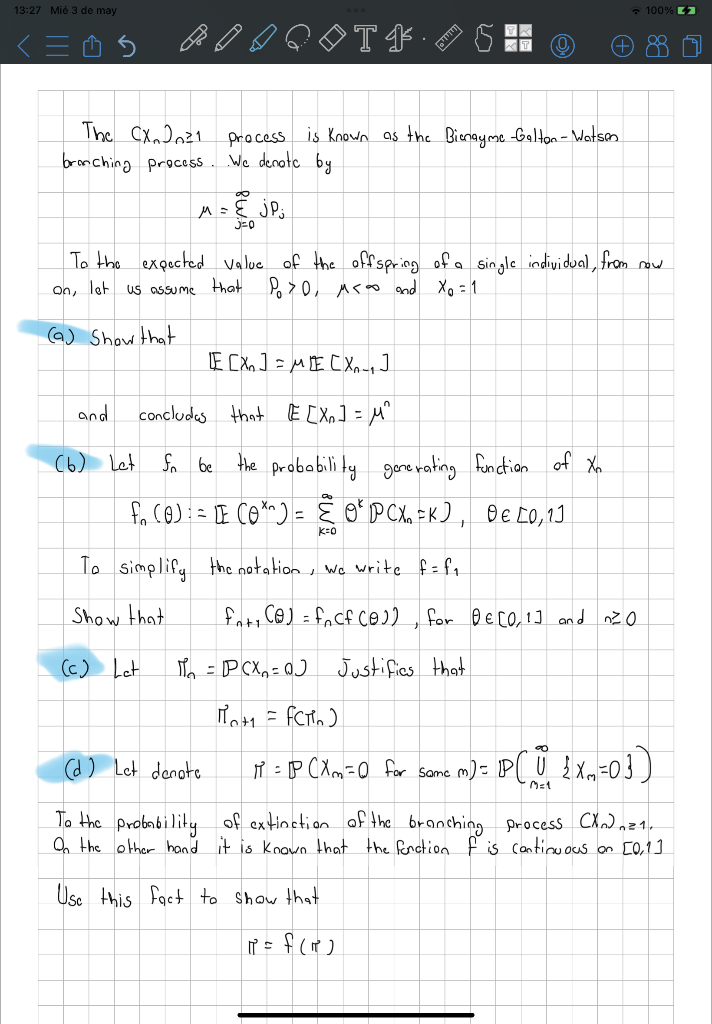 13:27 Mié 3 de may
100%
The (Xn)n≥1 process is known as the Bienayme-Galton-Watson
branching process. We denote by
μ = Σ_{j=0}^{∞} jPj
To the expected value of the offspring of a single individual, from now
on, let us assume that P₀ > 0, μ < ∞ and X₀ = 1
(a) Show that
𝔼[Xn] = μ𝔼[Xn-1]
and concludes that 𝔼[Xn] = μⁿ
(b) Let fn be the probability generating function of Xn
fn(θ) := 𝔼(θ^{Xn}) = Σ_{k=0}^{∞} θ^k ℙ(Xn = k), θ ∈ [0,1]
To simplify the notation, we write f = f₁
Show that fn+1(θ) = fn(f(θ)), for θ ∈ [0,1] and n ≥ 0
(c) Let πn = ℙ(Xn = 0) Justifies that
πn+1 = f(πn)
(d) Let denote π = ℙ(Xm = 0 for some m) = ℙ(⋃_{m=1}^{∞} {Xm = 0})
To the probability of extinction of the branching process (Xn)n≥1.
On the other hand it is known that the function f is continuous on [0,1]
Use this fact to show that
π = f(π)